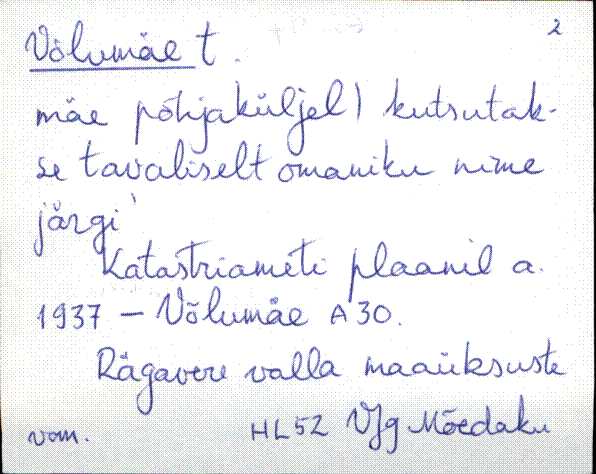 2
Võlumäe t.
mäe põhjaküljel) kutsutak-
se tavaliselt omaniku nime
järgi
Katastriameti plaanil a.
1937 — Võlumäe A30.
Rägavere valla maaüksuste
vom. HL52 VJg Mõedaku